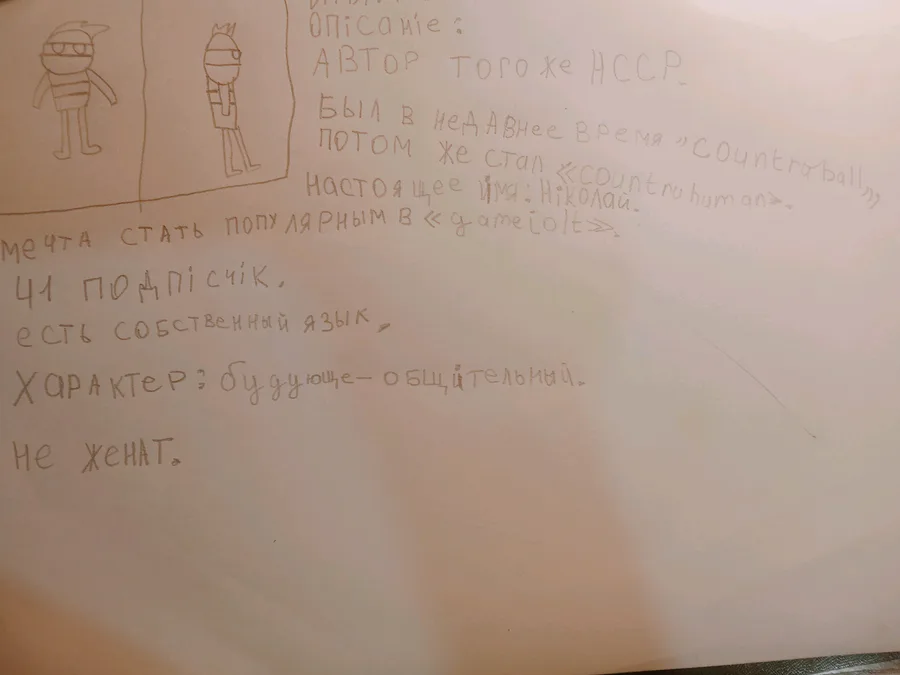 опісаніе:
АВТОР ТОГО же НССР.
БЫЛ В неДАВнее ВРемЯ "COuntroball"
ПОТОМ же СТАЛ «COuntrohuman».
НАСТОЯщее імя: НіКОЛАЙ.
мечТА СТАТЬ ПОПУЛЯРНЫМ В «gamejolt».
41 ПОДПісчіК.
есть СОБСТВенный язык.
ХАРАКТЕР: будующе-общітельный.
не ЖЕНАТ.